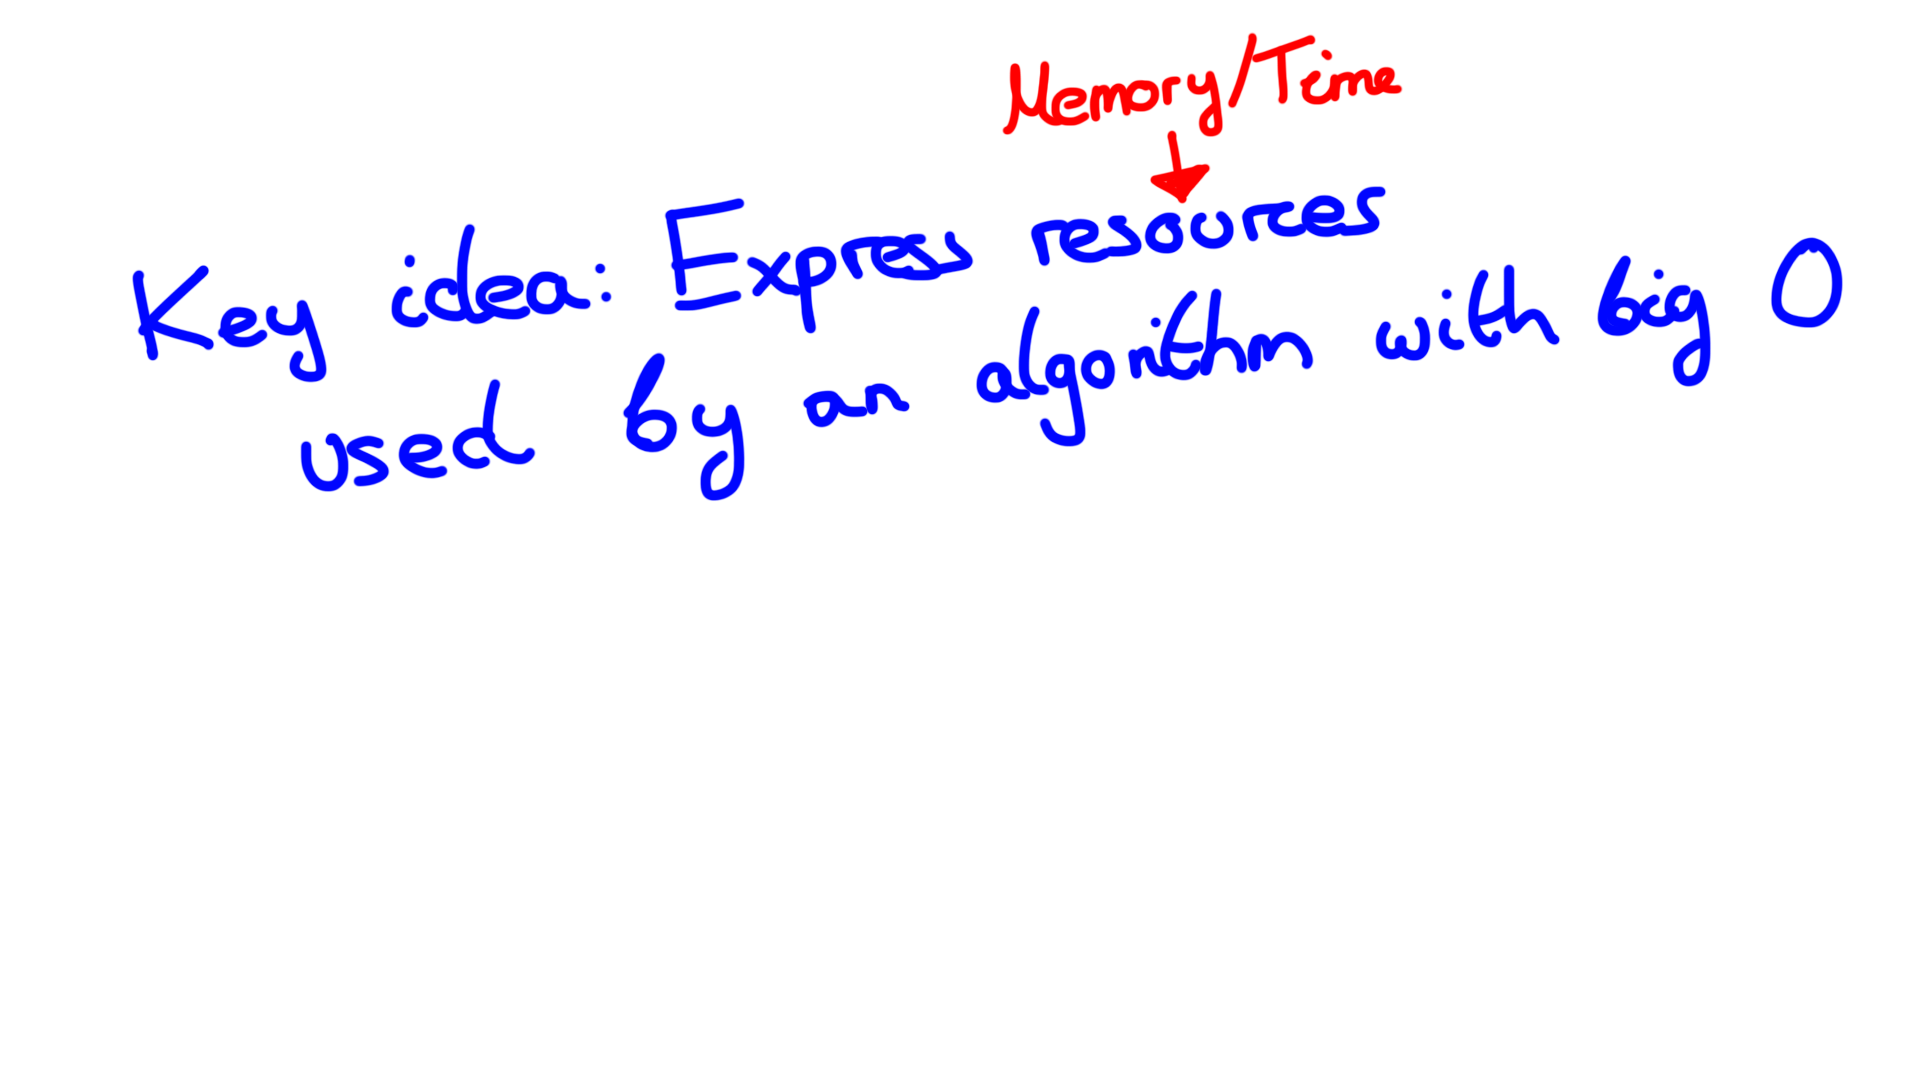 Memory/Time
Key idea: Express resources
used by an algorithm with big O